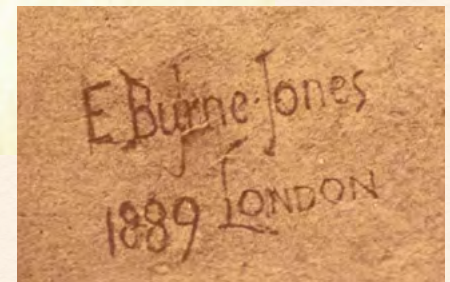 E Burne-Jones
1889 LONDON